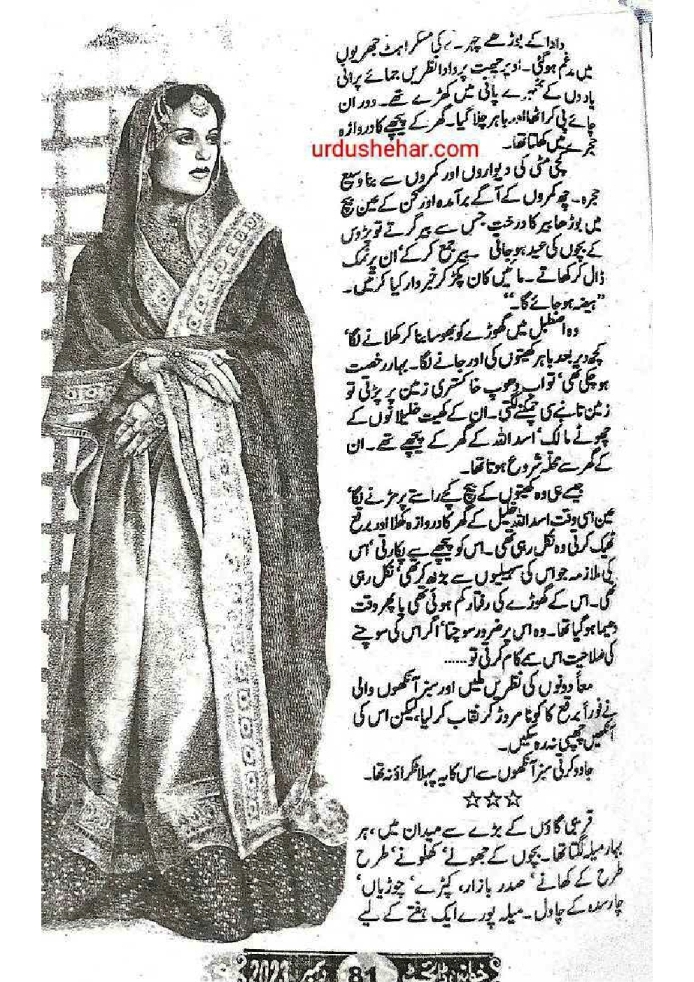 دادا کے بوڑھے چہرے کی مسکراہٹ جھریوں
میں مدغم ہو گئی۔ اوپر چھت پر دادا نظریں جمائے پرانی
یادوں کے ٹھہرے پانی میں کھڑے تھے۔ دوران
چائے پی کر اٹھا اور باہر چلا گیا۔ گھر کے پیچھے کا دروازہ
حجرے میں کھلتا تھا۔
urdushehar.com
کچی مٹی کی دیواروں اور کمروں سے بنا وسیع
حجرہ۔ چھ کمروں کے آگے برآمدہ اور صحن کے عین بیچ
میں بوڑھا بیر کا درخت جس سے بیر گرتے تو پڑوس
کے بچوں کی عید ہو جاتی۔ بیر جمع کر کے ان پر نمک
ڈال کر کھاتے۔ مائیں کان پکڑ کر خبردار کیا کرتیں۔
”ہیضہ ہو جائے گا۔“
وہ اصطبل میں گھوڑے کو بھوسا بنا کر کھلانے لگا‘
کچھ دیر بعد باہر کھیتوں کی اور جانے لگا۔ بہار رخصت
ہو چکی تھی‘ تو اب دھوپ خاکستری زمین پر پڑتی تو
زمین تانبے سی چمکنے لگتی۔ ان کے کھیت خلیلانوں کے
چھوٹے مالک‘ اسد اللہ کے گھر کے پیچھے تھے۔ ان
کے گھر سے محلہ شروع ہوتا تھا۔
جیسے ہی وہ کھیتوں کے بیچ کچے راستے پر مڑنے لگا‘
عین اسی وقت اسد اللہ خلیل کے گھر کا دروازہ کھلا اور برقع
ٹھیک کرتی وہ نکل رہی تھی۔ اس کو پیچھے سے پکارتی‘ اس
کی ملازمہ جو اس کی سہیلیوں سے بڑھ کر تھی‘ نکل رہی
تھی۔ اس کے گھوڑے کی رفتار کم ہوئی تھی یا پھر وقت
دھیما ہو گیا تھا۔ وہ اس پر ضرور سوچتا‘ اگر اس کی سوچنے
کی صلاحیت اس سے کام کرتی تو......
معاً دونوں کی نظریں ملیں اور سبز آنکھوں والی
نے فوراً برقع کا کونا مروڑ کر نقاب کر لیا‘ لیکن اس کی
آنکھیں چھپی نہ رہ سکیں۔
جادو کرتی سبز آنکھوں سے اس کا یہ پہلا ٹکراؤ نہ تھا۔
☆☆☆
قریبی گاؤں کے بڑے سے میدان میں، ہر
بہار میلہ لگتا تھا۔ بچوں کے جھولے‘ کھلونے‘ طرح
طرح کے کھانے‘ صدر بازار، کپڑے‘ چوڑیاں‘
چارسدہ کے چاول۔ میلہ پورے ایک ہفتے کے لیے
81
2021